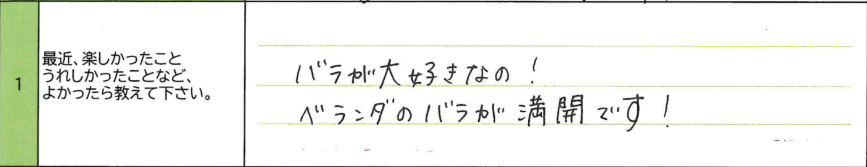 1
最近、楽しかったこと
うれしかったことなど、
よかったら教えて下さい。
バラが大好きなの!
ベランダのバラが満開です!